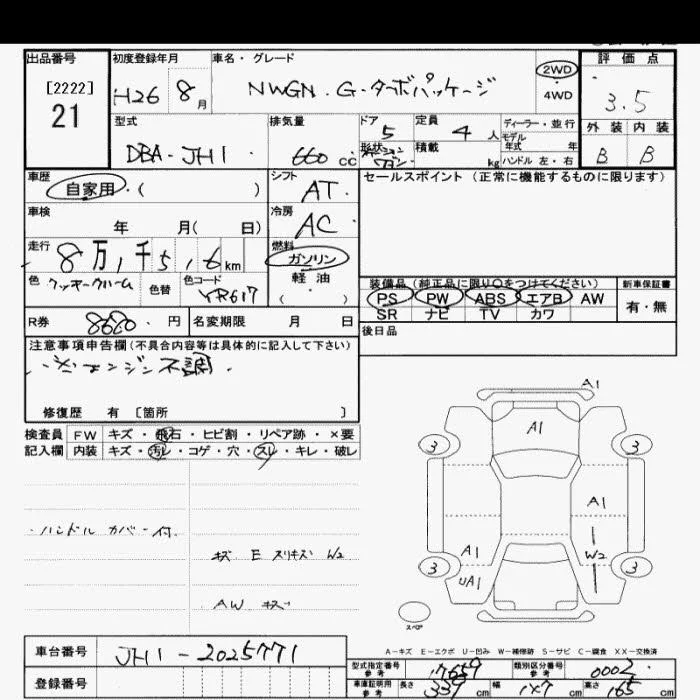 出品番号 初度登録年月 車名・グレード 評価点
[2222]
21
H26 8月 NWGN.G・ターボパッケージ 2WD・4WD 3.5
型式 排気量 ドア 定員 ディーラー・並行 外装 内装
DBA-JH1 660cc 5 4人 モデル年式 年 B B
形状 積載 kg ハンドル 左・右
車歴 シフト セールスポイント (正常に機能するものに限ります)
自家用・( ) AT
車検 冷房
年 月( 日) AC
走行 燃料
8万1千516km ガソリン
色 色替 色コード 軽油
クッキークリーム YR617 ( )
装備品(純正品に限り○をつけてください) 新車保証書
PS PW ABS エアB AW 有・無
SR ナビ TV カワ
R券 8680.円 名変期限 月 日 後日品
注意事項申告欄(不具合内容等は具体的に記入して下さい)
エンジン不調.
修復歴 有 〔箇所 〕
検査員 FW キズ・飛石・ヒビ割・リペア跡・×要
記入欄 内装 キズ・汚レ・コゲ・穴・スレ・キレ・破レ
・ハンドルカバー付.
キズ E スリキズ W2
AW キズ
A1
A1
3 3
A1
A1 W2
3 3
UA1
スペア
A-キズ E-エクボ U-凹み W-補修跡 S-サビ C-腐食 XX-交換済
車台番号 JH1-2025771
登録番号
型式指定番号 参考 17659 類別区分番号 参考 0002
車庫証明用 参考 長さ 339cm 幅 147cm 高さ 165cm